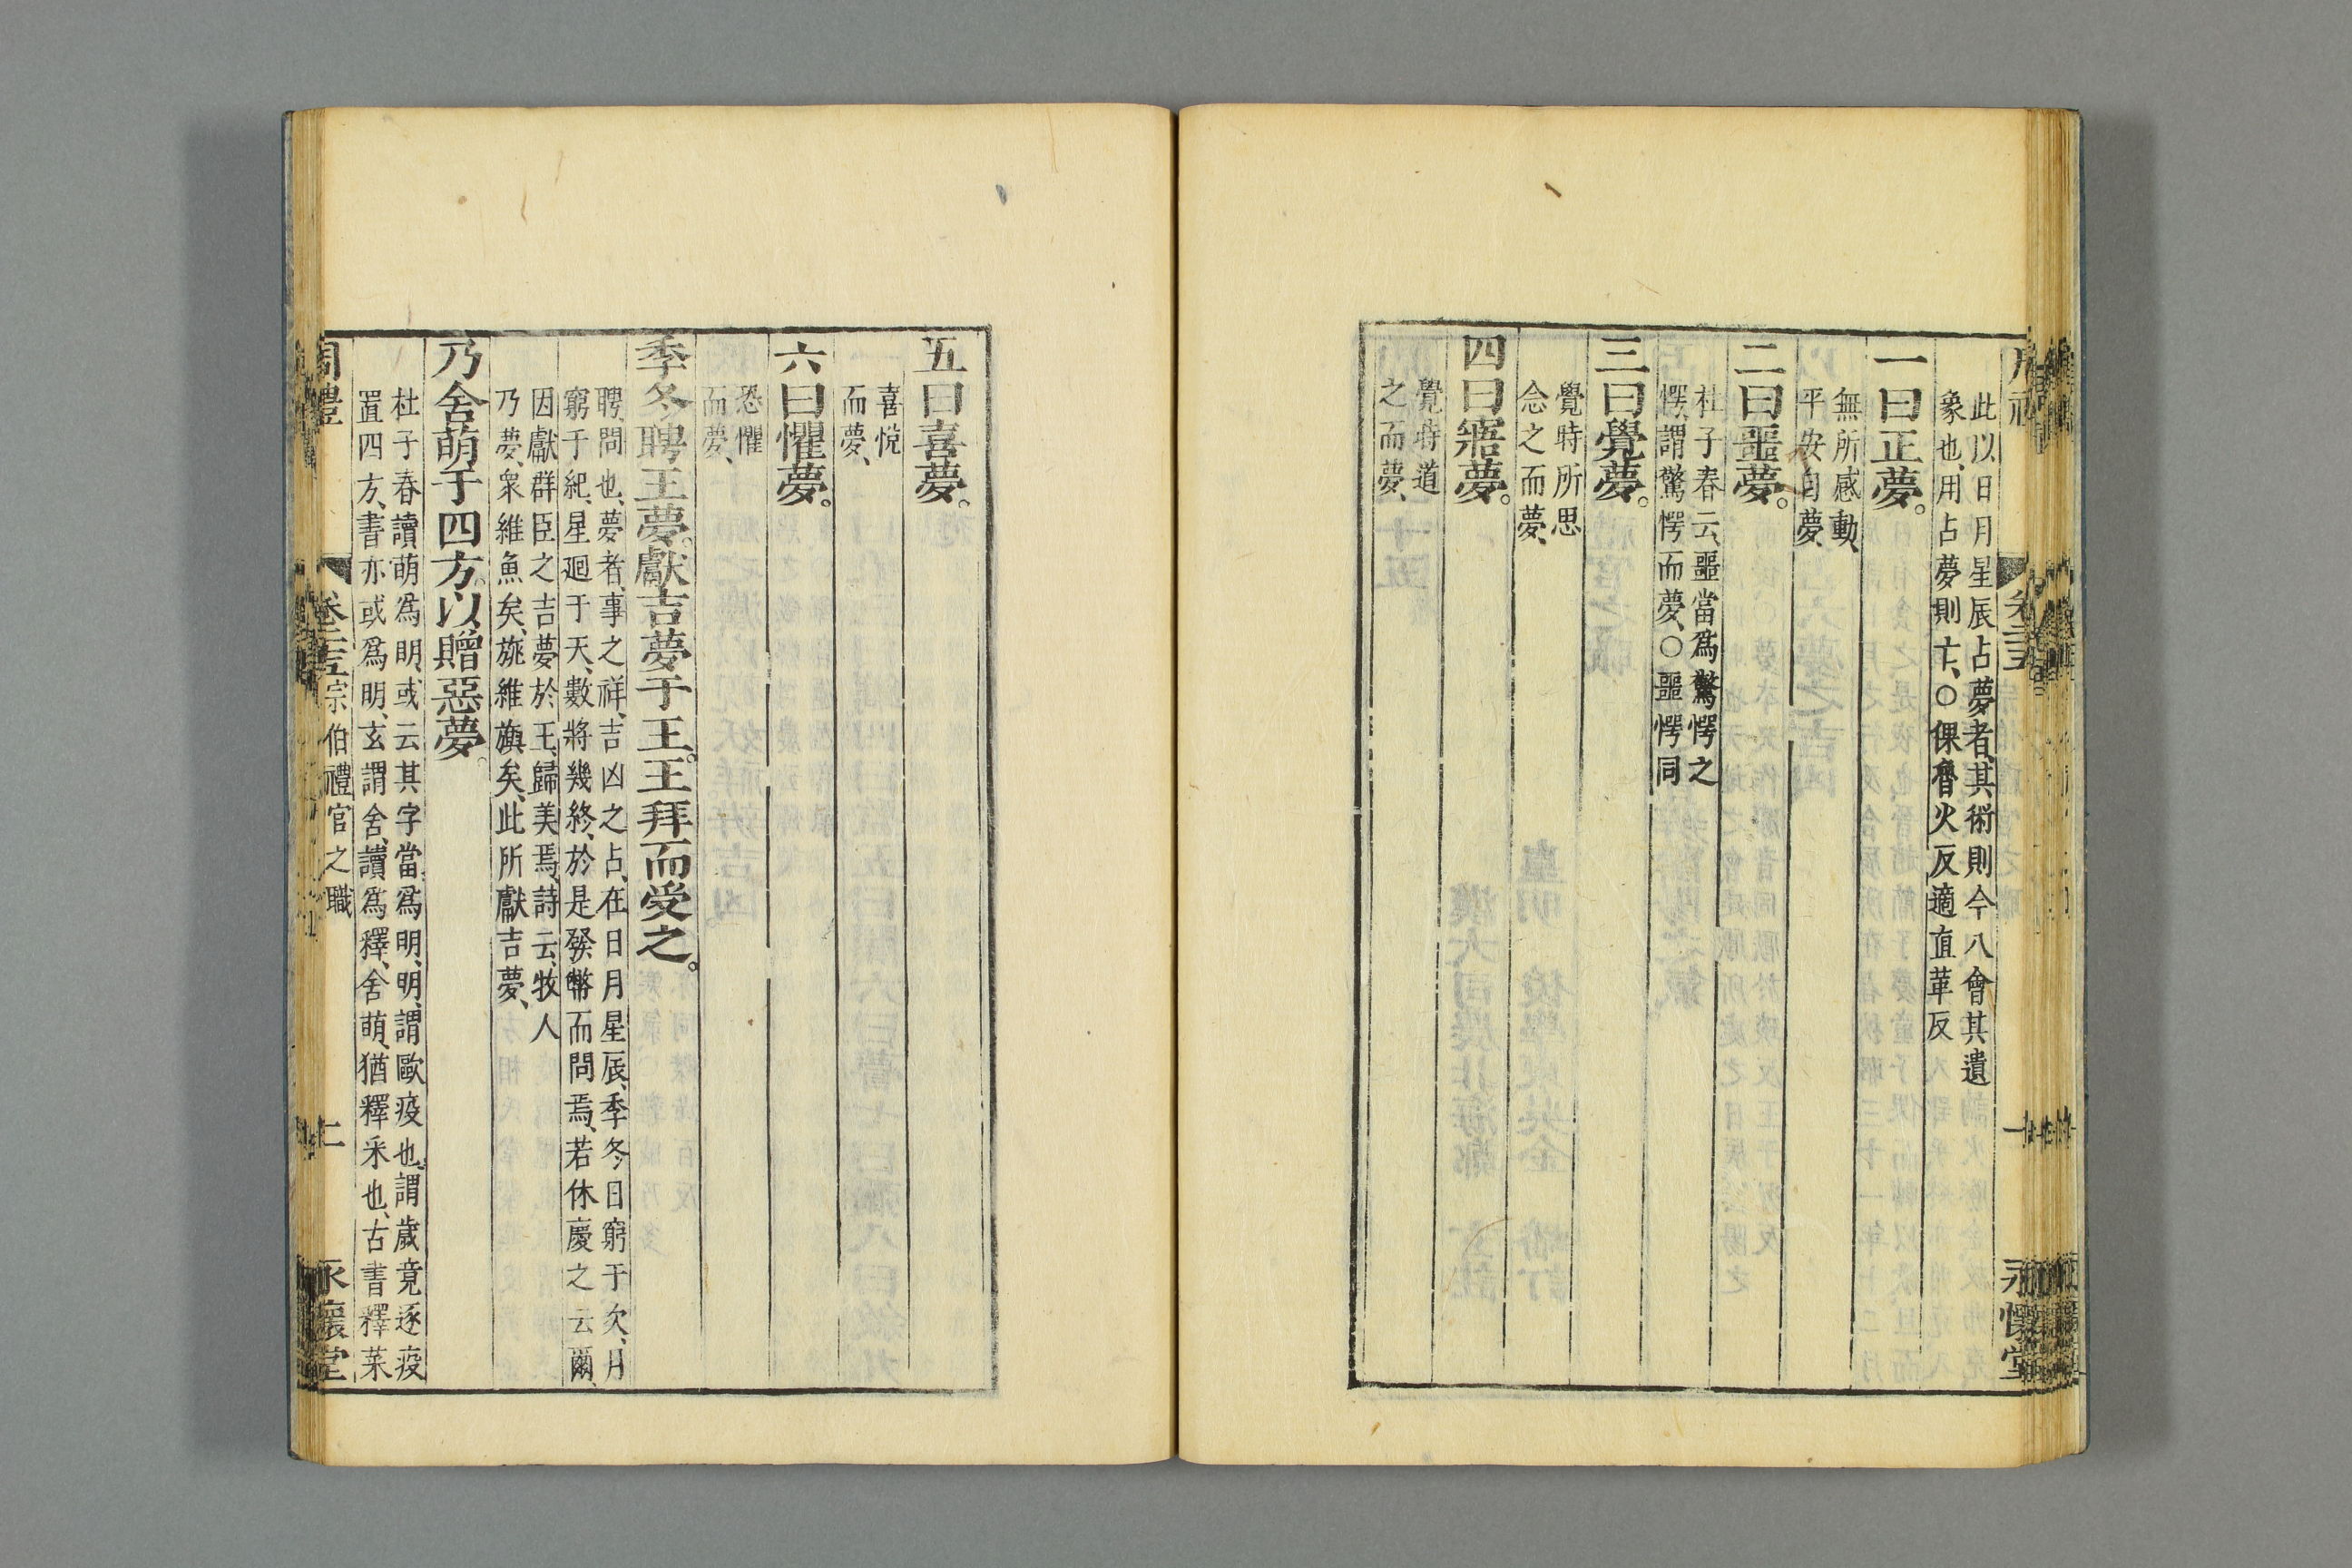 此以日月星辰占夢者、其術則今八會其遺
象也、用占夢則亡、○倮魯火反適直革反
一曰正夢。
無所感動、
平安自夢、
二曰噩夢。
杜子春云、噩當爲驚愕之
愕、謂驚愕而夢、○噩愕同
三曰覺夢。
覺時所思
念之而夢、
四曰寤夢。
覺時道
之而夢、
五曰喜夢。
喜悅
而夢、
六曰懼夢。
恐懼
而夢、
季冬聘王夢。獻吉夢于王。王拜而受之。
聘、問也、夢者、事之祥、吉凶之占、在日月星辰、季冬日窮于次、月
窮于紀、星廻于天、數將幾終、於是發幣而問焉、若休慶之云爾、
因獻群臣之吉夢於王、歸美焉、詩云、牧人
乃夢、衆維魚矣、旐維旟矣、此所獻吉夢、
乃舍萌于四方。以贈惡夢。
杜子春讀萌爲明、或云其字當爲明、明、謂歐疫也、謂歲竟逐疫
置四方、書亦或爲明、玄謂舍、讀爲釋、舍萌、猶釋采也、古書釋菜
周禮 卷二十五 宗伯禮官之職 二 永懷堂